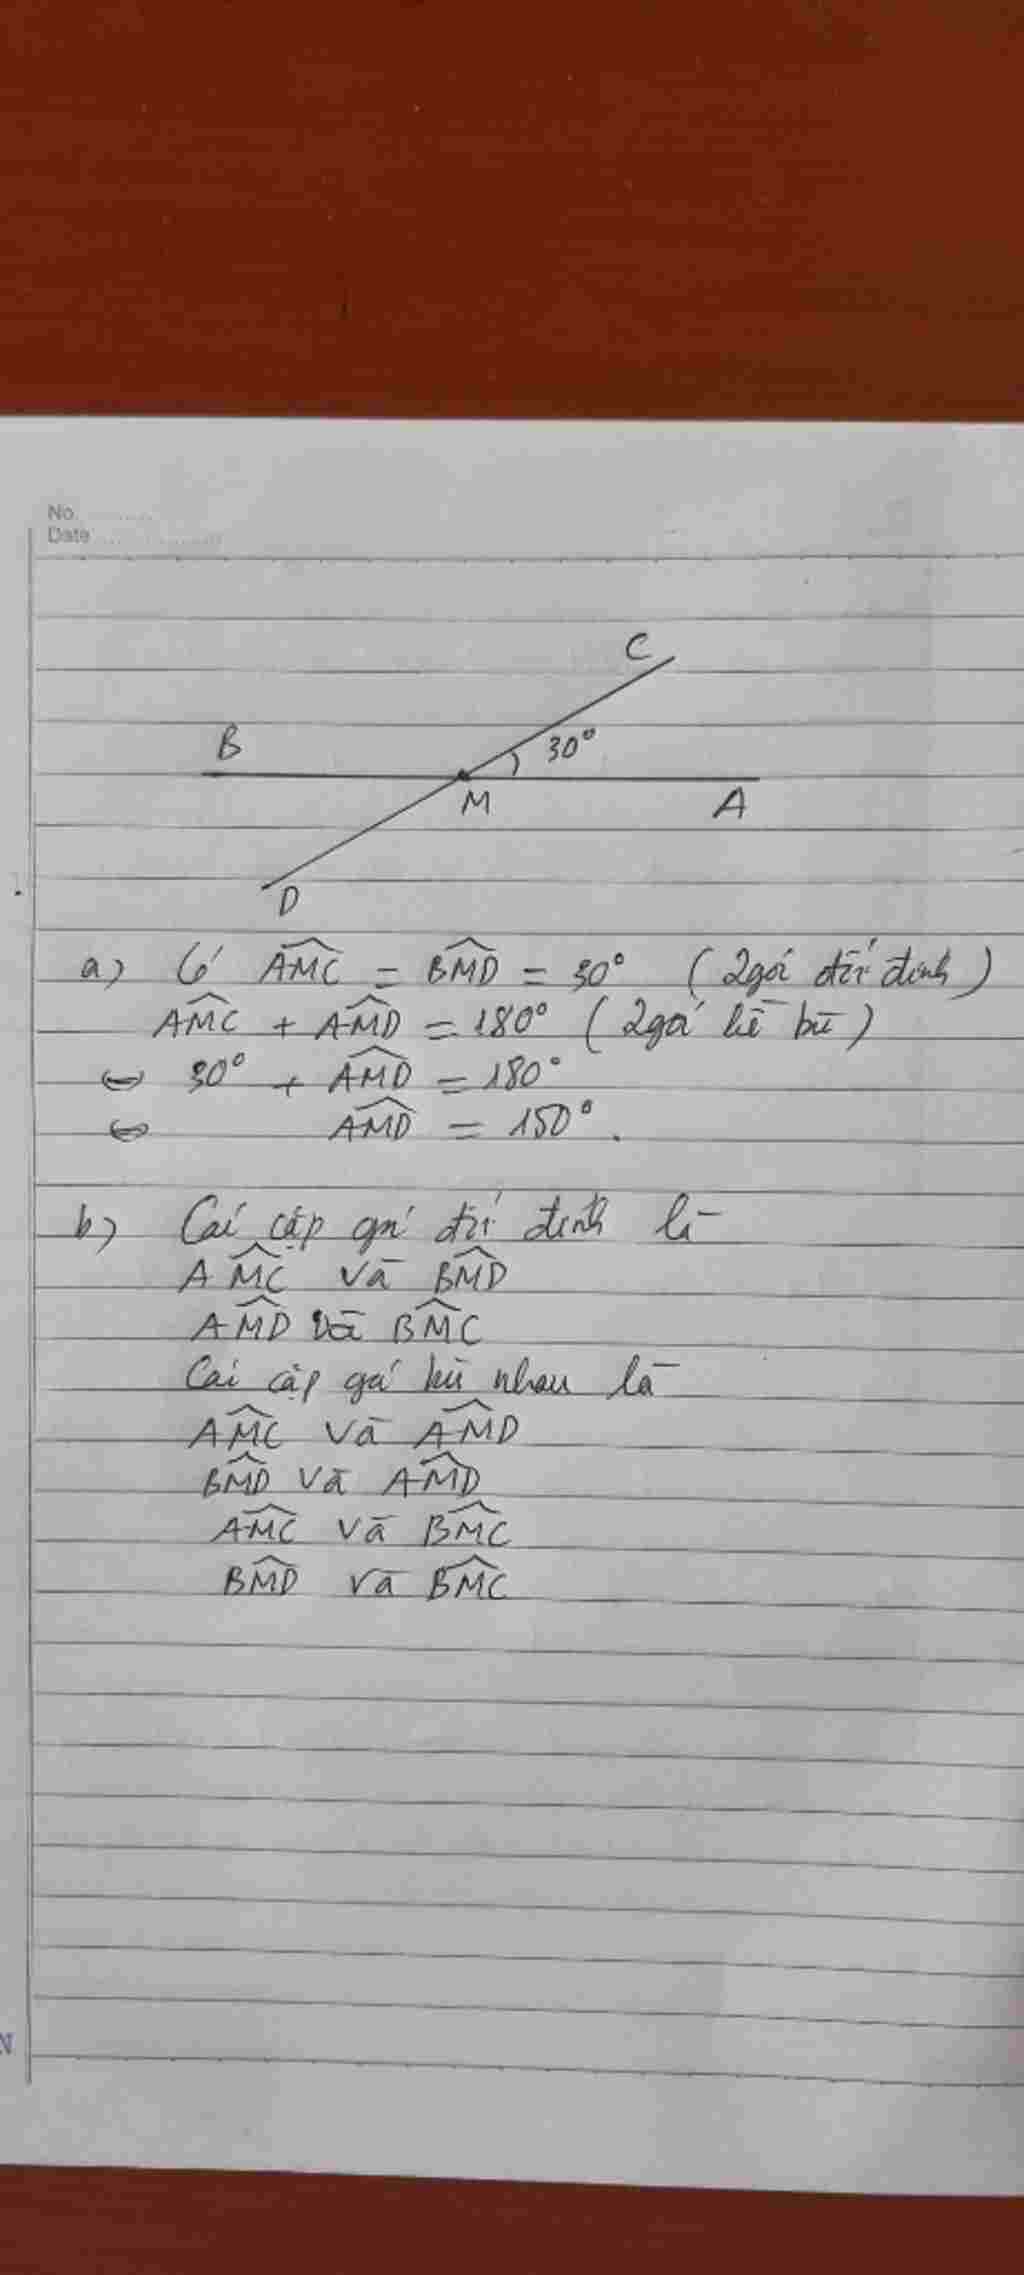 No.
Date
C
B
30°
M
A
D
a) Có AMC = BMD = 30° (2 góc đối đỉnh)
AMC + AMD = 180° (2 góc kề bù)
⇔ 30° + AMD = 180°
⇔ AMD = 150°.
b) Các cặp góc đối đỉnh là
AMC và BMD
AMD và BMC
Các cặp góc bù nhau là
AMC và AMD
BMD và AMD
AMC và BMC
BMD và BMC
N